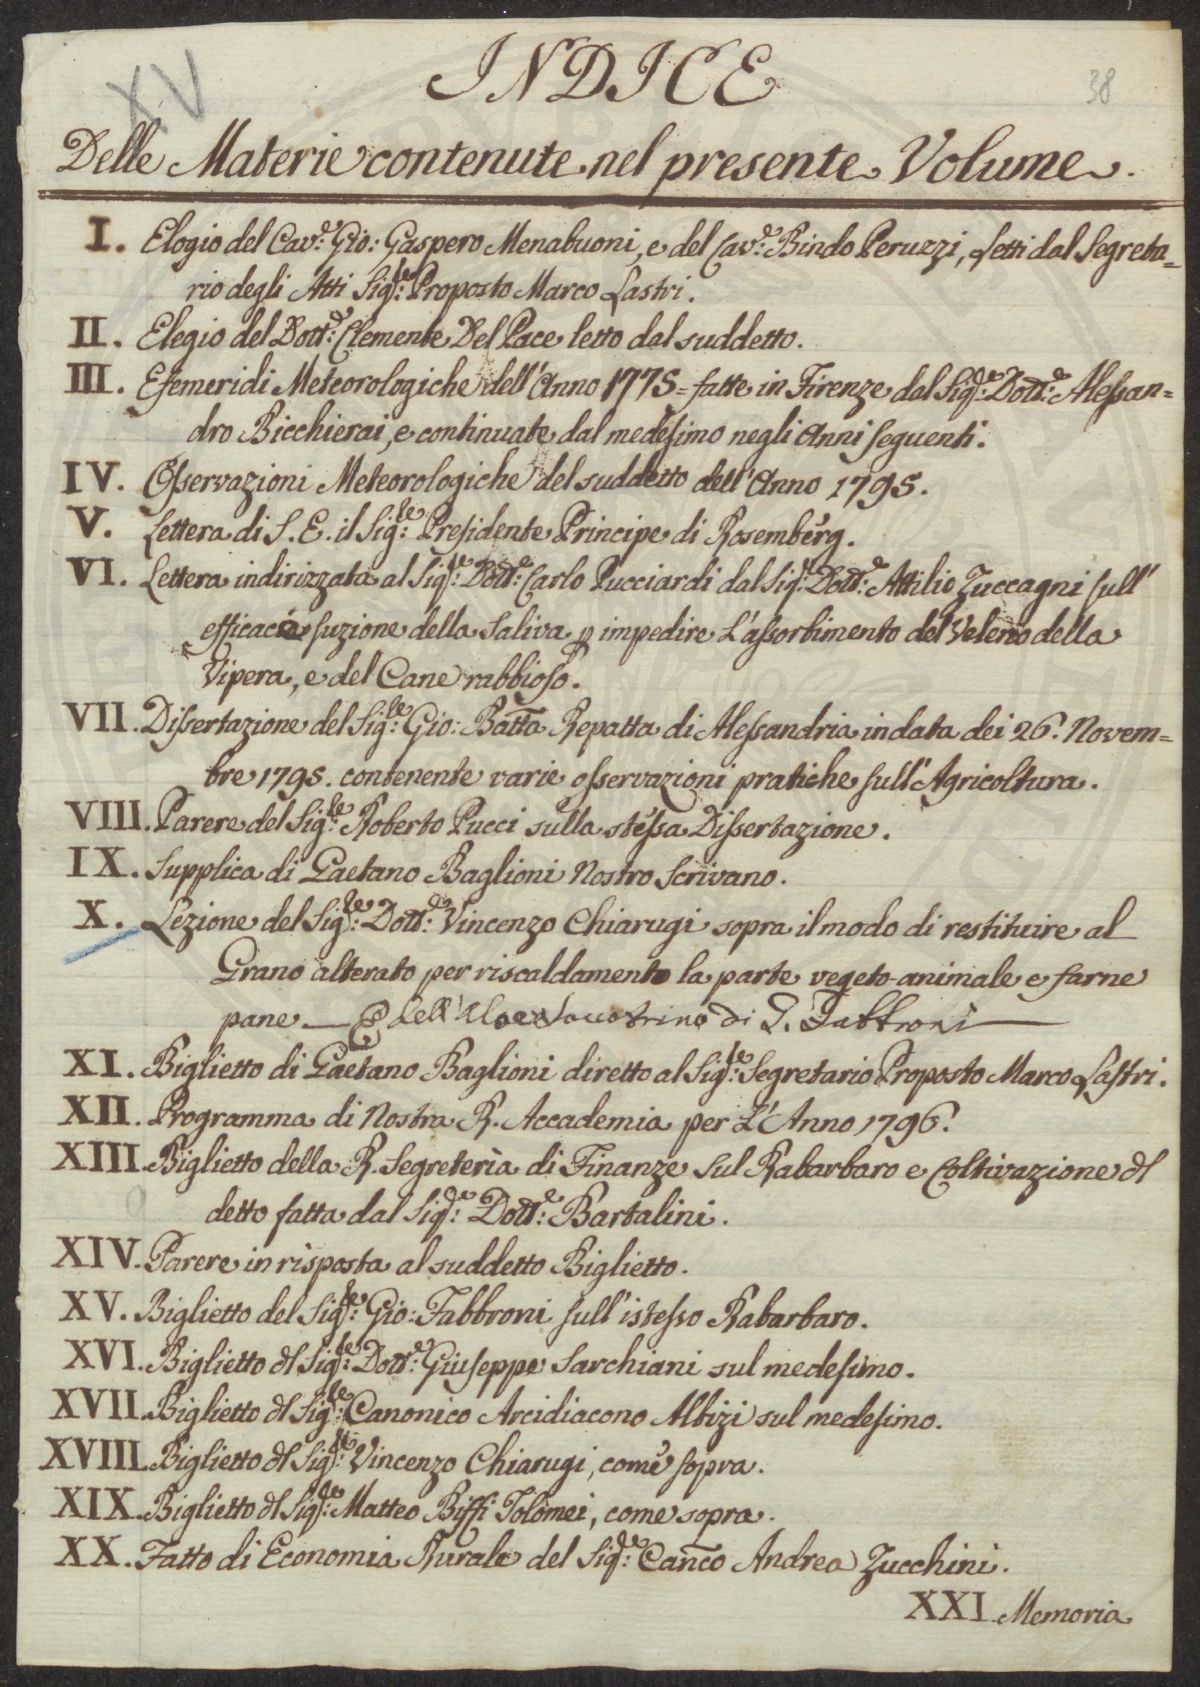 XV
38
INDICE
Delle Materie contenute nel presente Volume.
I. Elogio del Cav.e Gio: Gaspero Menabuoni, e del Cav.e Bindo Peruzzi, Letti dal Segreta=
rio degli Atti Sig.re Proposto Marco Lastri.
II. Elegio del Dott.e Clemente Del Pace letto dal suddetto.
III. Efemeridi Meteorologiche dell'Anno 1775= fatte in Firenze dal Sig.re Dott.e Alessan=
dro Bicchierai, e continuate dal medesimo negli Anni seguenti.
IV. Osservazioni Meteorologiche del suddetto dell'Anno 1795.
V. Lettera di S. E. il Sig.re Presidente Principe di Rosemberg.
VI. Lettera indirizzata al Sig.re Dott.e Carlo Pucciardi dal Sig.re Dott.e Attilio Zuccagni sull'
efficace suzione della Saliva p impedire L'assorbimento del Veleno della
Vipera, e del Cane rabbioso.
VII. Dissertazione del Sig.re Gio: Batta Repatta di Alessandria in data dei 26. Novem=
bre 1795. contenente varie osservazioni pratiche sull'Agricoltura.
VIII. Parere del Sig.re Roberto Pucci sulla stessa Dissertazione.
IX. Supplica di Gaetano Baglioni Nostro Scrivano.
X. Lezione del Sig.re Dott.e Vincenzo Chiarugi sopra il modo di restituire al
Grano alterato per riscaldamento la parte vegeto-animale e farne
pane — E dell'Aloe Soccotrino di G. Fabbroni —
XI. Biglietto di Gaetano Baglioni diretto al Sig.re Segretario Proposto Marco Lastri.
XII. Programma di Nostra R. Accademia per L'Anno 1796.
XIII. Biglietto della R. Segreterìa di Finanze sul Rabarbaro e Coltivazione dl
detto fatta dal Sig.re Dott.e Bartalini.
XIV. Parere in risposta al suddetto Biglietto.
XV. Biglietto del Sig.re Gio: Fabbroni sull'istesso Rabarbaro.
XVI. Biglietto dl Sig.re Dott.e Giuseppe Sarchiani sul medesimo.
XVII. Biglietto dl Sig.re Canonico Arcidiacono Albizi sul medesimo.
XVIII. Biglietto dl Sig.re Vincenzo Chiarugi, come sopra.
XIX. Biglietto dl Sig.re Matteo Biffi Tolomei, come sopra.
XX. Fatto di Economia Rurale del Sig.re Canco Andrea Zucchini.
XXI. Memoria